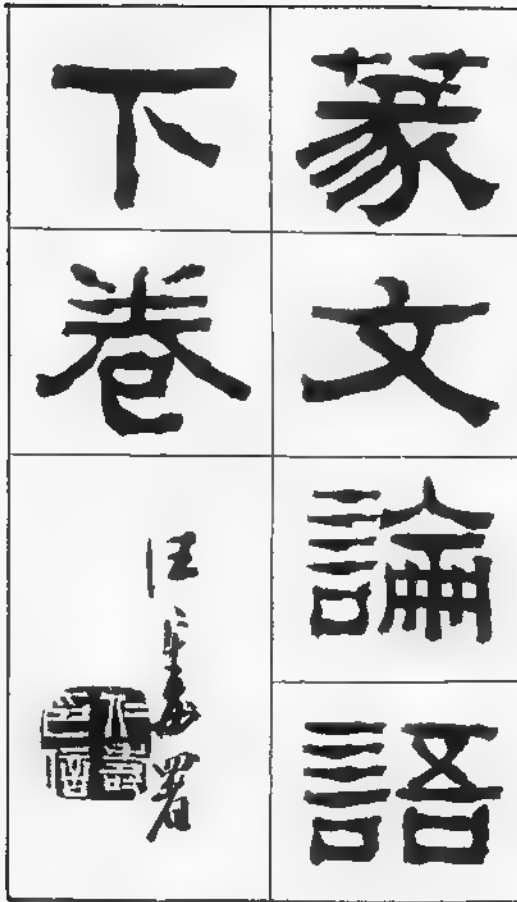 篆文論語
下卷
汪仁壽署